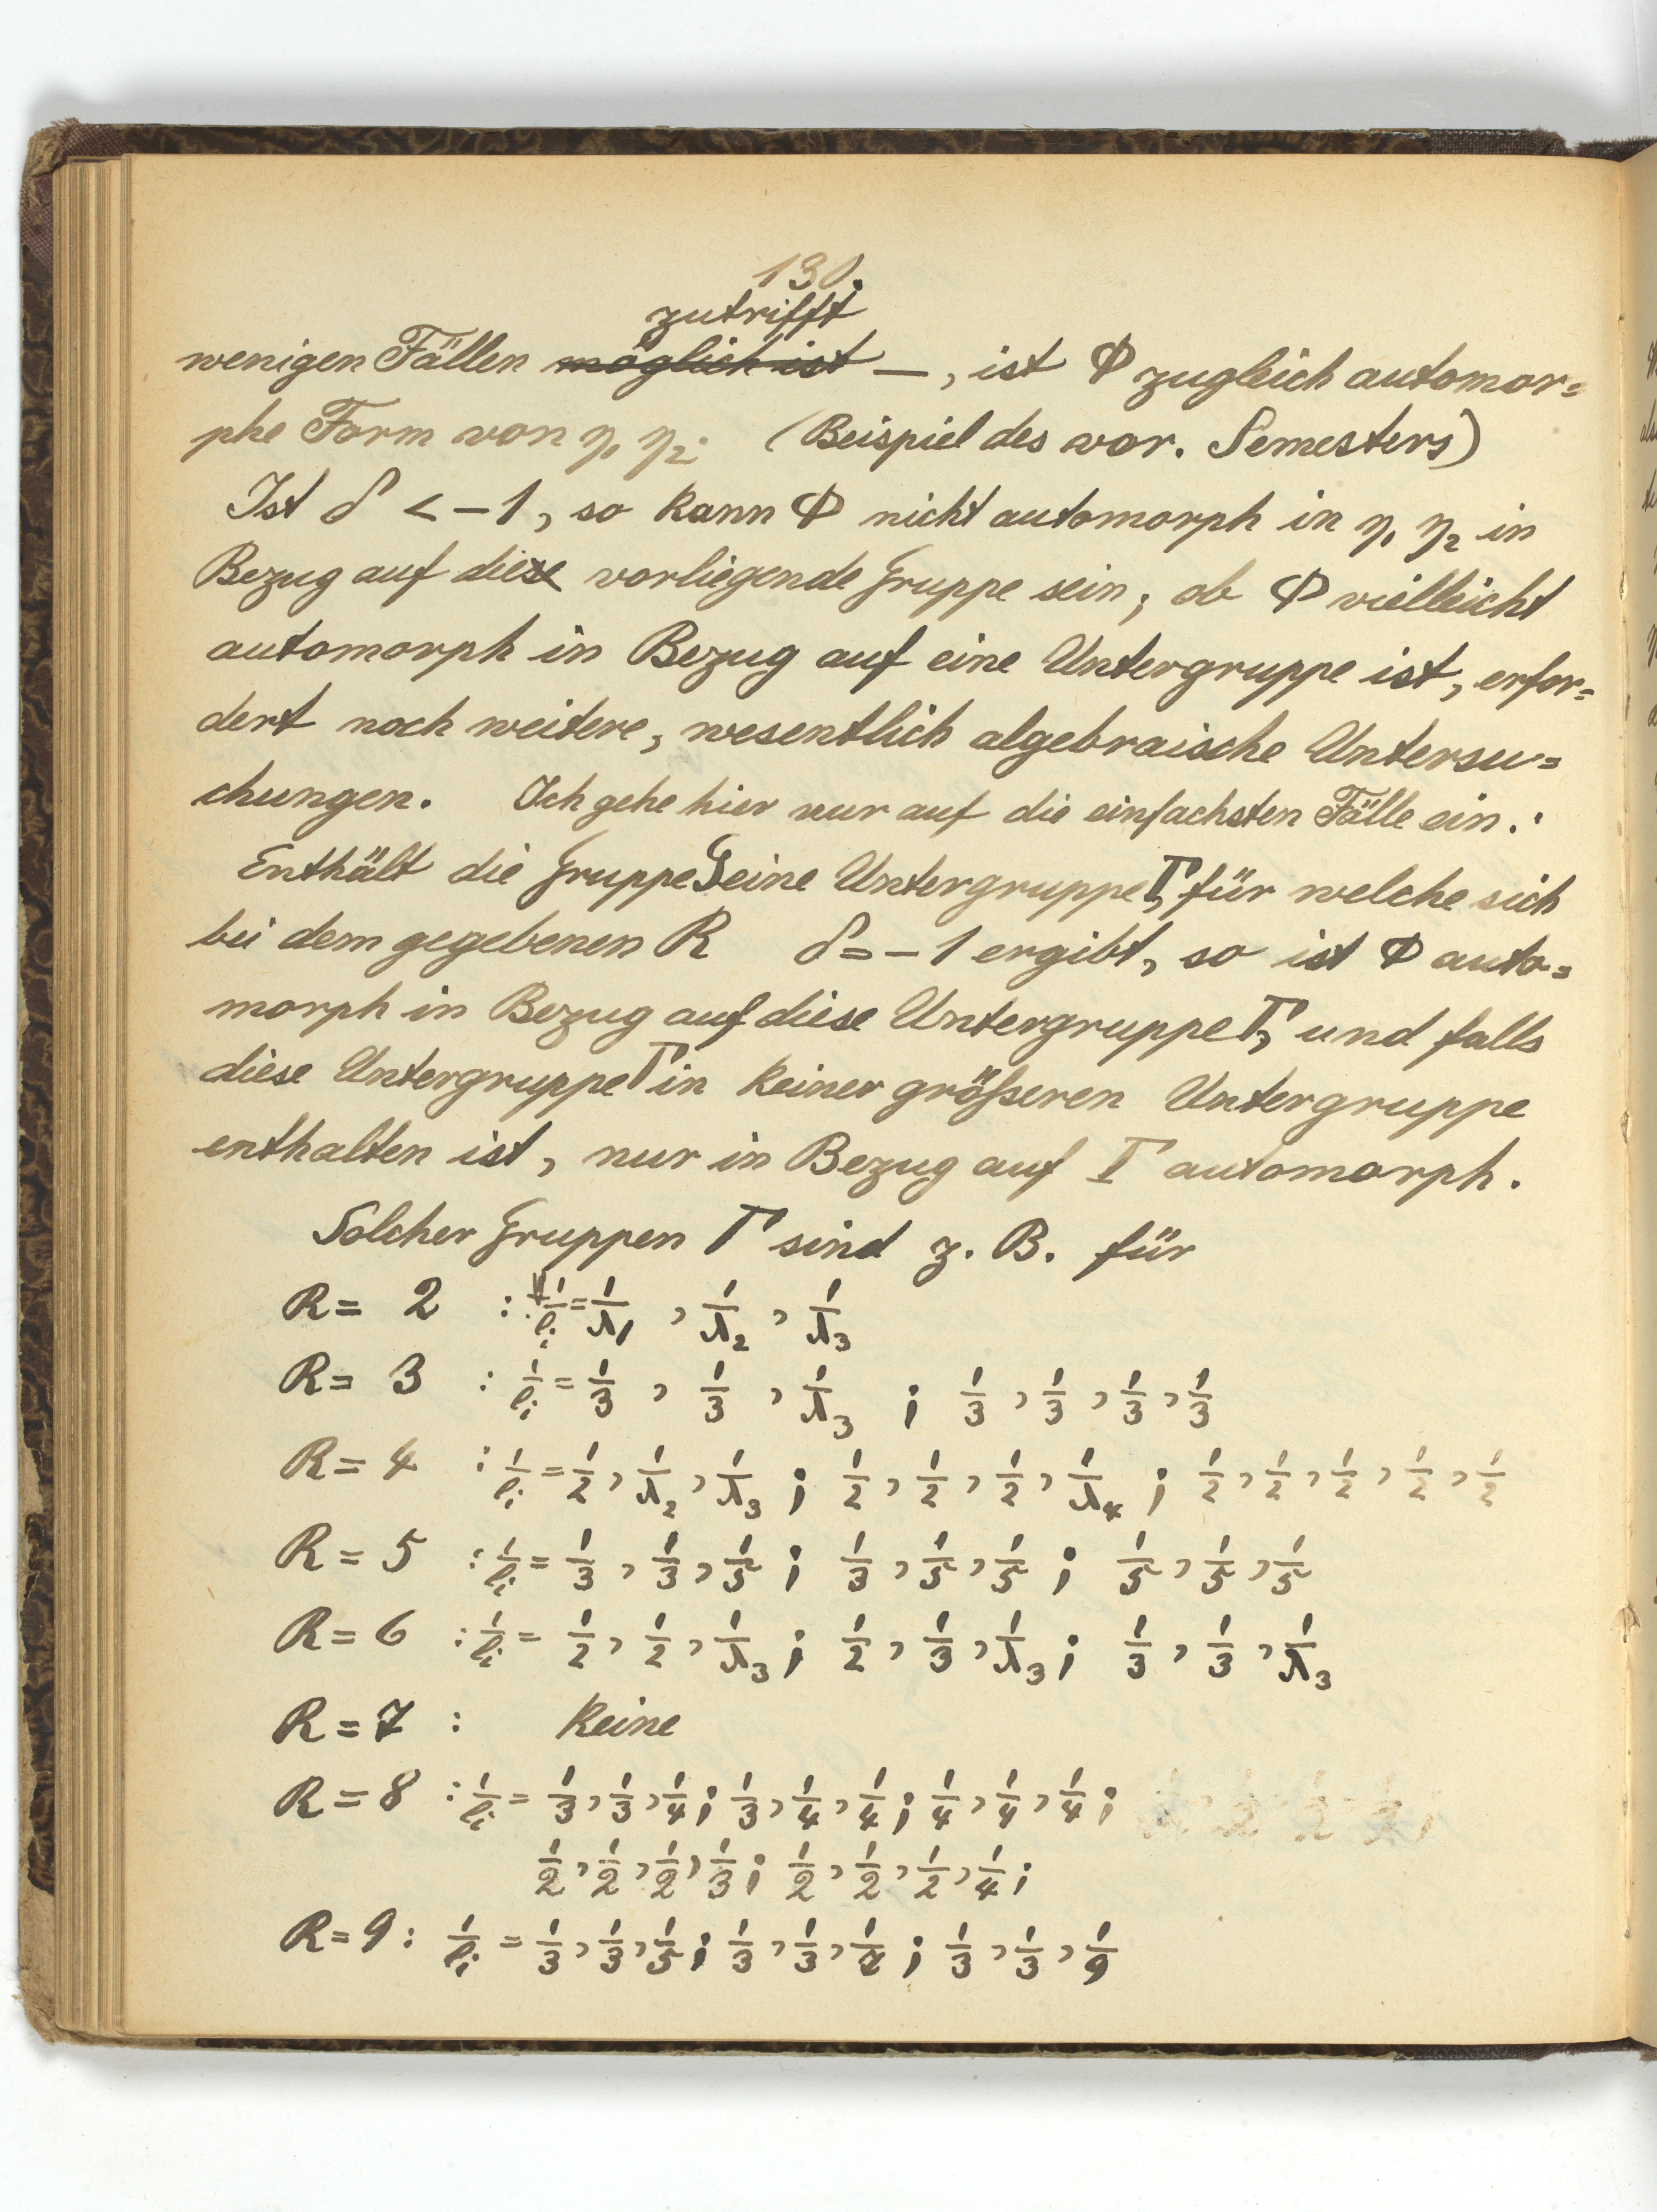 130.
zutrifft
wenigen Fällen möglich ist —, ist Φ zugleich automor=
phe Form von η₁ η₂. (Beispiel des vor. Semesters)
Ist δ < −1, so kann Φ nicht automorph in η₁ η₂ in
Bezug auf diese vorliegende Gruppe sein; ob Φ vielleicht
automorph in Bezug auf eine Untergruppe ist, erfor=
dert noch weitere, wesentlich algebraische Untersu=
chungen. Ich gehe hier nur auf die einfachsten Fälle ein.:
Enthält die Gruppe G eine Untergruppe Γ, für welche sich
bei dem gegebenen R δ = −1 ergibt, so ist Φ auto=
morph in Bezug auf diese Untergruppe Γ, und falls
diese Untergruppe Γ in keiner größeren Untergruppe
enthalten ist, nur in Bezug auf Γ automorph.
Solcher Gruppen Γ sind z. B. für
R = 2 : 1/ℓᵢ = 1/λ₁, 1/λ₂, 1/λ₃
R = 3 : 1/ℓᵢ = 1/3, 1/3, 1/λ₃ ; 1/3, 1/3, 1/3, 1/3
R = 4 : 1/ℓᵢ = 1/2, 1/λ₂, 1/λ₃ ; 1/2, 1/2, 1/2, 1/λ₄ ; 1/2, 1/2, 1/2, 1/2, 1/2
R = 5 : 1/ℓᵢ = 1/3, 1/3, 1/5 ; 1/3, 1/5, 1/5 ; 1/5, 1/5, 1/5
R = 6 : 1/ℓᵢ = 1/2, 1/2, 1/λ₃ ; 1/2, 1/3, 1/λ₃ ; 1/3, 1/3, 1/λ₃
R = 7 : Keine
R = 8 : 1/ℓᵢ = 1/3, 1/3, 1/4 ; 1/3, 1/4, 1/4 ; 1/4, 1/4, 1/4 ;
1/2, 1/2, 1/2, 1/3 ; 1/2, 1/2, 1/2, 1/4 ;
R = 9 : 1/ℓᵢ = 1/3, 1/3, 1/5 ; 1/3, 1/3, 1/7 ; 1/3, 1/3, 1/9